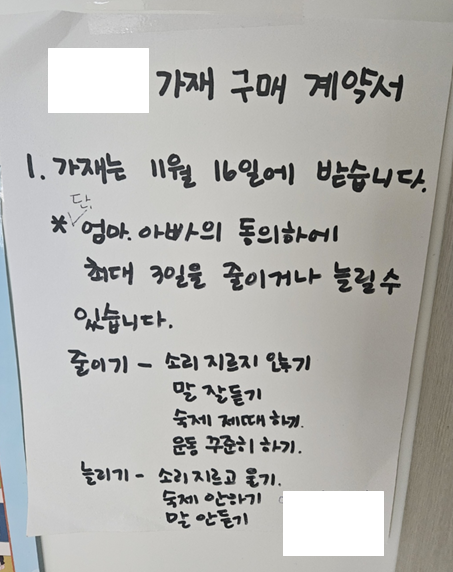 가재 구매 계약서
1. 가재는 11월 16일에 받습니다.
단,
* 엄마. 아빠의 동의하에
최대 3일을 줄이거나 늘릴 수
있습니다.
줄이기 - 소리 지르지 않기
말 잘듣기
숙제 제때 하기.
운동 꾸준히 하기.
늘리기 - 소리 지르고 울기.
숙제 안하기
말 안듣기